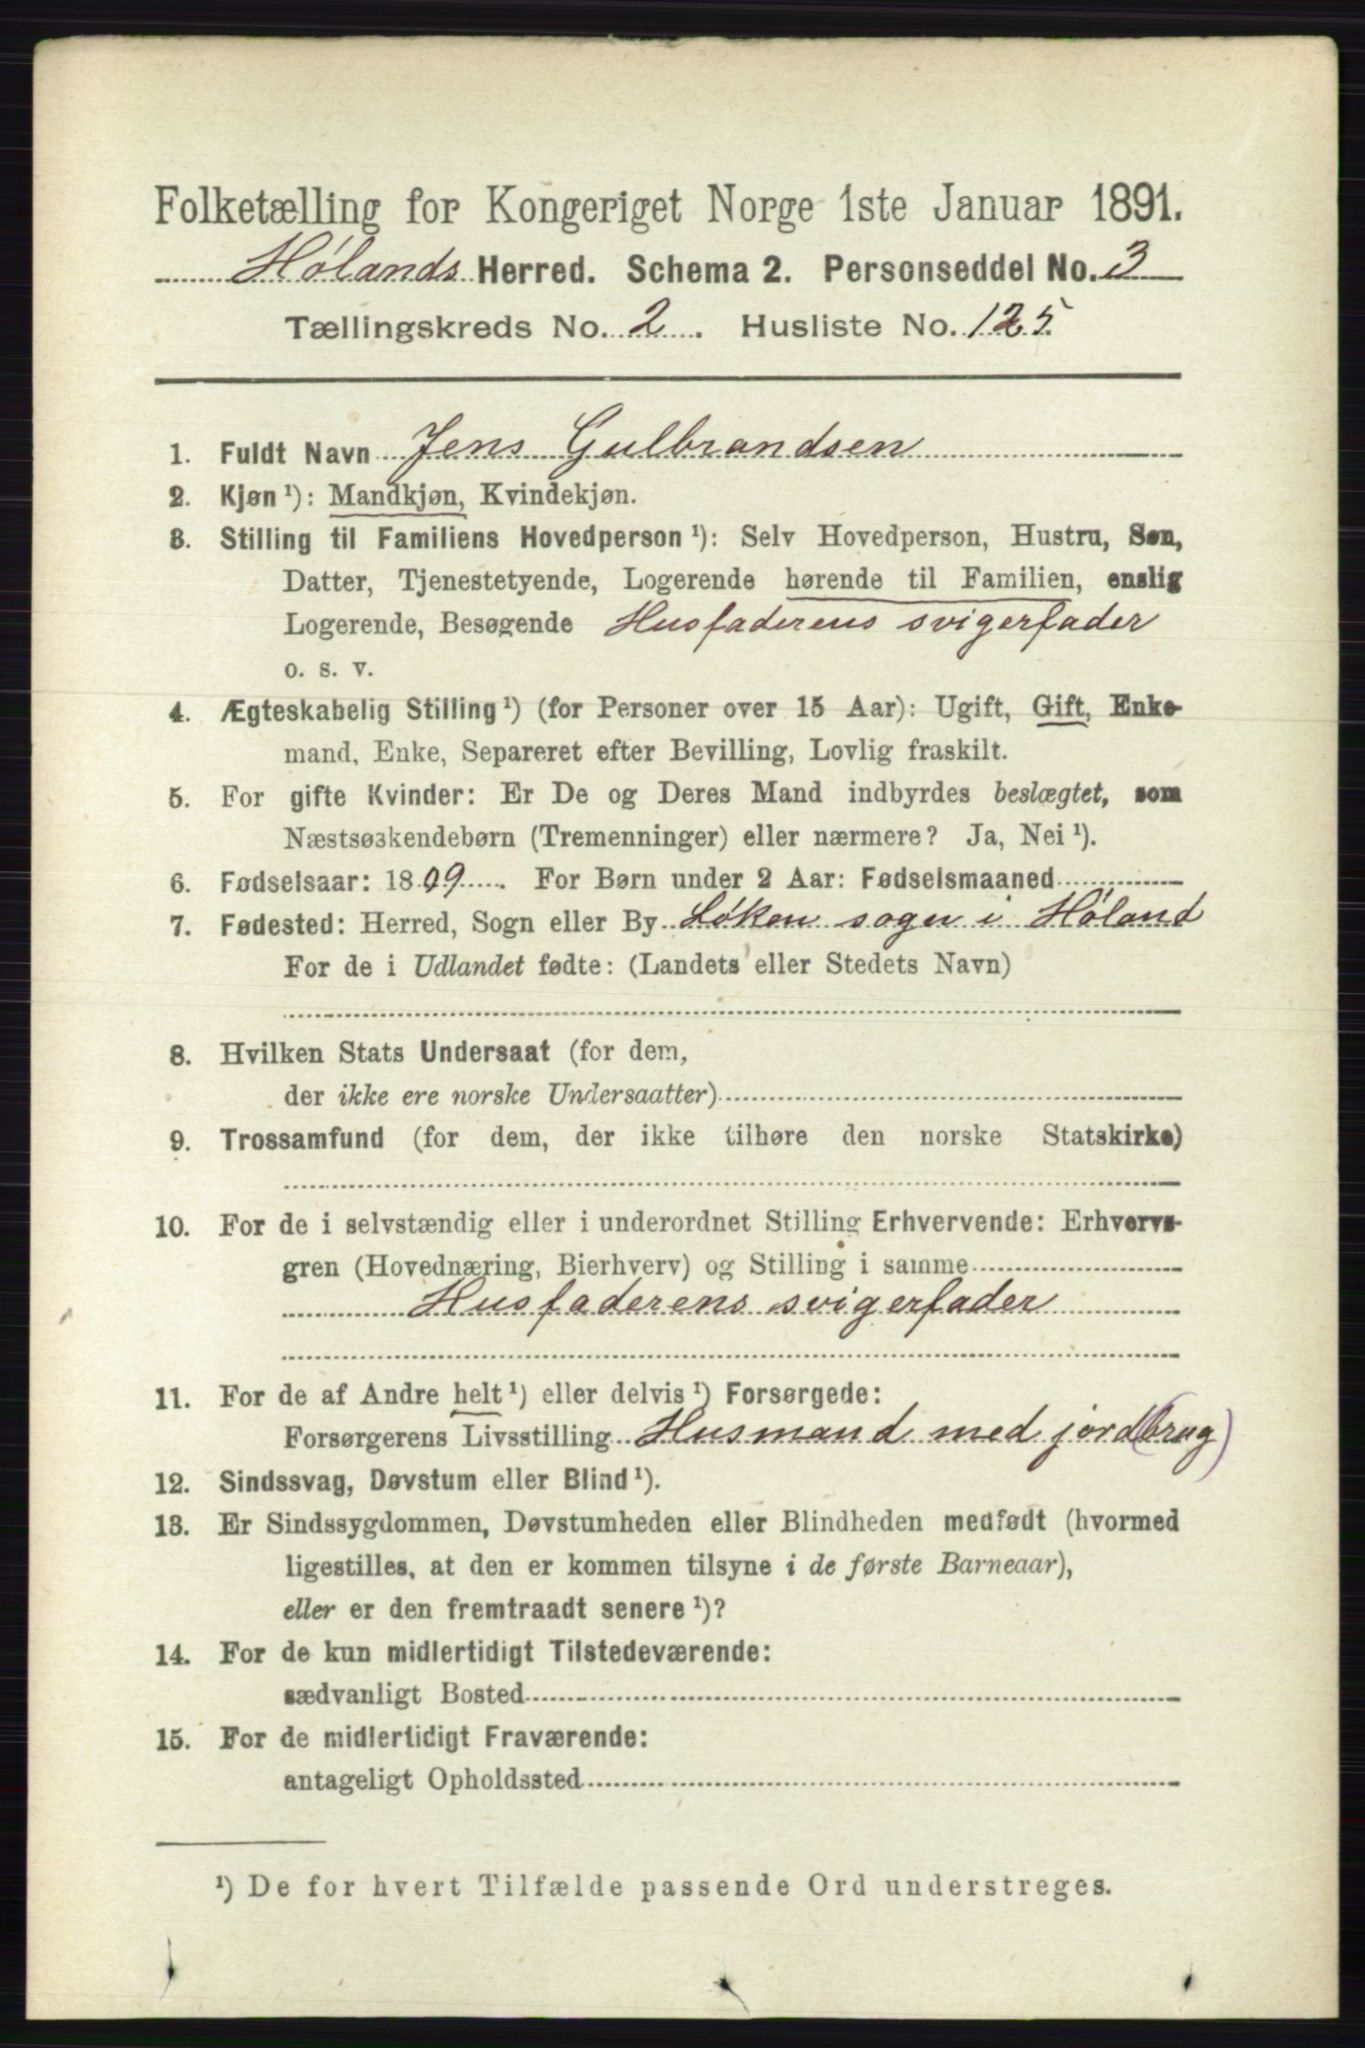 Folketælling for Kongeriget Norge 1ste Januar 1891.
Hølands Herred. Schema 2. Personseddel No. 3
Tællingskreds No. 2. Husliste No. 125
1. Fuldt Navn Jens Gulbrandsen
2. Kjøn ¹): Mandkjøn, Kvindekjøn.
3. Stilling til Familiens Hovedperson ¹): Selv Hovedperson, Hustru, Søn,
Datter, Tjenestetyende, Logerende hørende til Familien, enslig
Logerende, Besøgende Husfaderens svigerfader
o. s. v.
4. Ægteskabelig Stilling ¹) (for Personer over 15 Aar): Ugift, Gift, Enke-
mand, Enke, Separeret efter Bevilling, Lovlig fraskilt.
5. For gifte Kvinder: Er De og Deres Mand indbyrdes beslægtet, som
Næstsøskendebørn (Tremenninger) eller nærmere? Ja, Nei ¹).
6. Fødselsaar: 1809. For Børn under 2 Aar: Fødselsmaaned
7. Fødested: Herred, Sogn eller By Løken sogn i Høland
For de i Udlandet fødte: (Landets eller Stedets Navn)
8. Hvilken Stats Undersaat (for dem,
der ikke ere norske Undersaatter)
9. Trossamfund (for dem, der ikke tilhøre den norske Statskirke)
10. For de i selvstændig eller i underordnet Stilling Erhvervende: Erhvervs-
gren (Hovednæring, Bierhverv) og Stilling i samme
Husfaderens svigerfader
11. For de af Andre helt ¹) eller delvis ¹) Forsørgede:
Forsørgerens Livsstilling Husmand med jord(brug)
12. Sindssvag, Døvstum eller Blind ¹).
13. Er Sindssygdommen, Døvstumheden eller Blindheden medfødt (hvormed
ligestilles, at den er kommen tilsyne i de første Barneaar),
eller er den fremtraadt senere ¹)?
14. For de kun midlertidigt Tilstedeværende:
sædvanligt Bosted
15. For de midlertidigt Fraværende:
antageligt Opholdssted
¹) De for hvert Tilfælde passende Ord understreges.